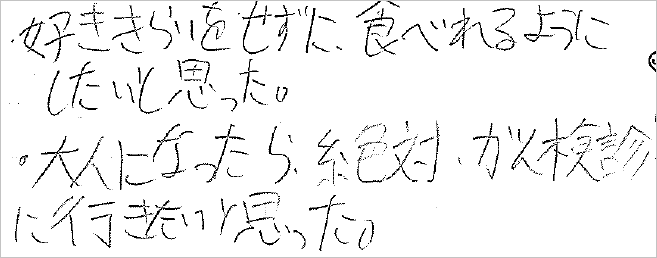 ・好ききらいをせずに、食べれるように
したいと思った。
・大人になったら、絶対、がん検診
に行きたいと思った。